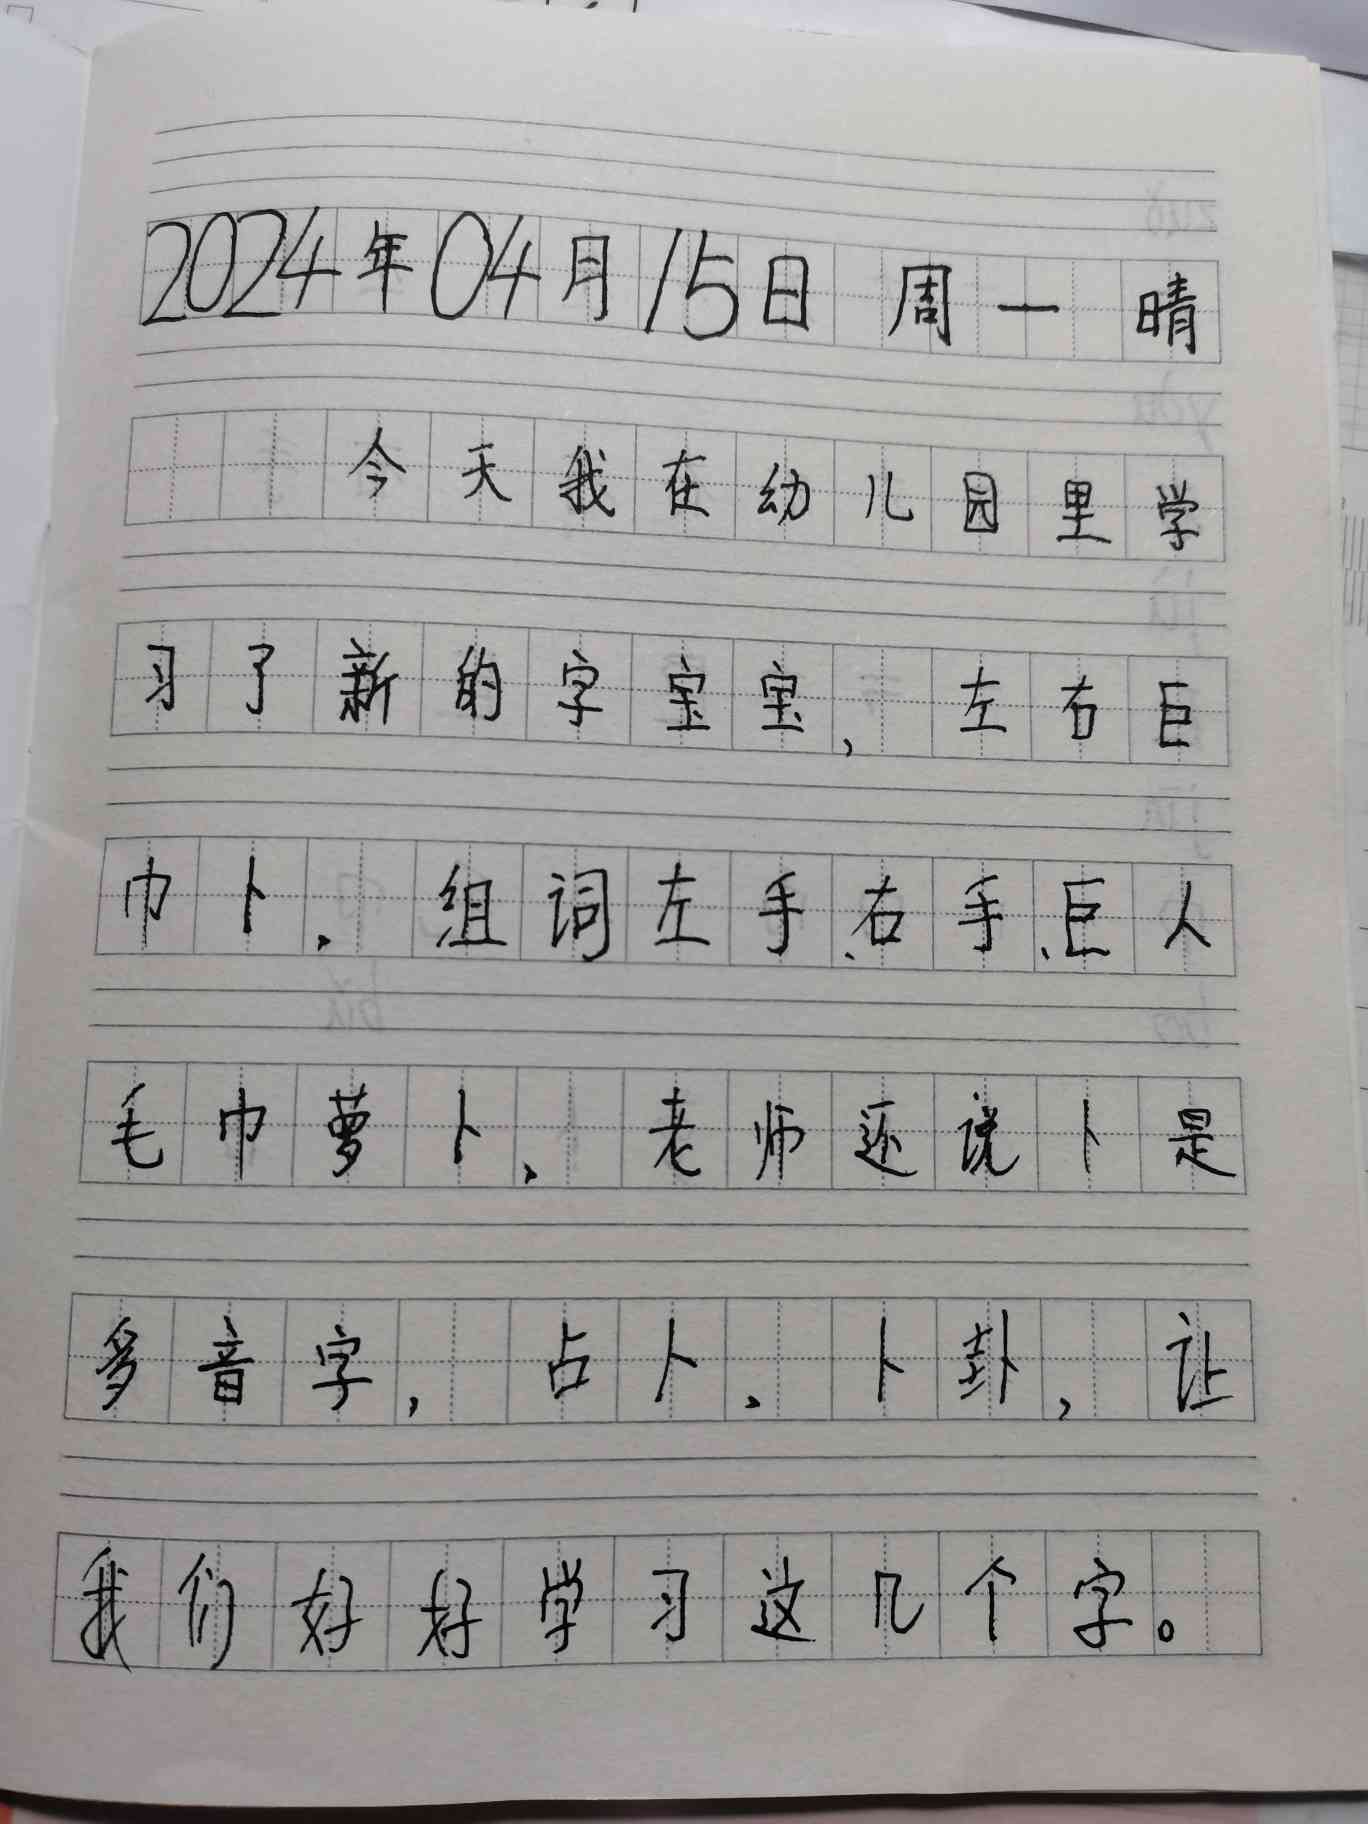 2024年04月15日 周一 晴
今天我在幼儿园里学
习了新的字宝宝，左右巨
巾卜，组词左手、右手、巨人
毛巾萝卜，老师还说卜是
多音字，占卜、卜卦，让
我们好好学习这几个字。